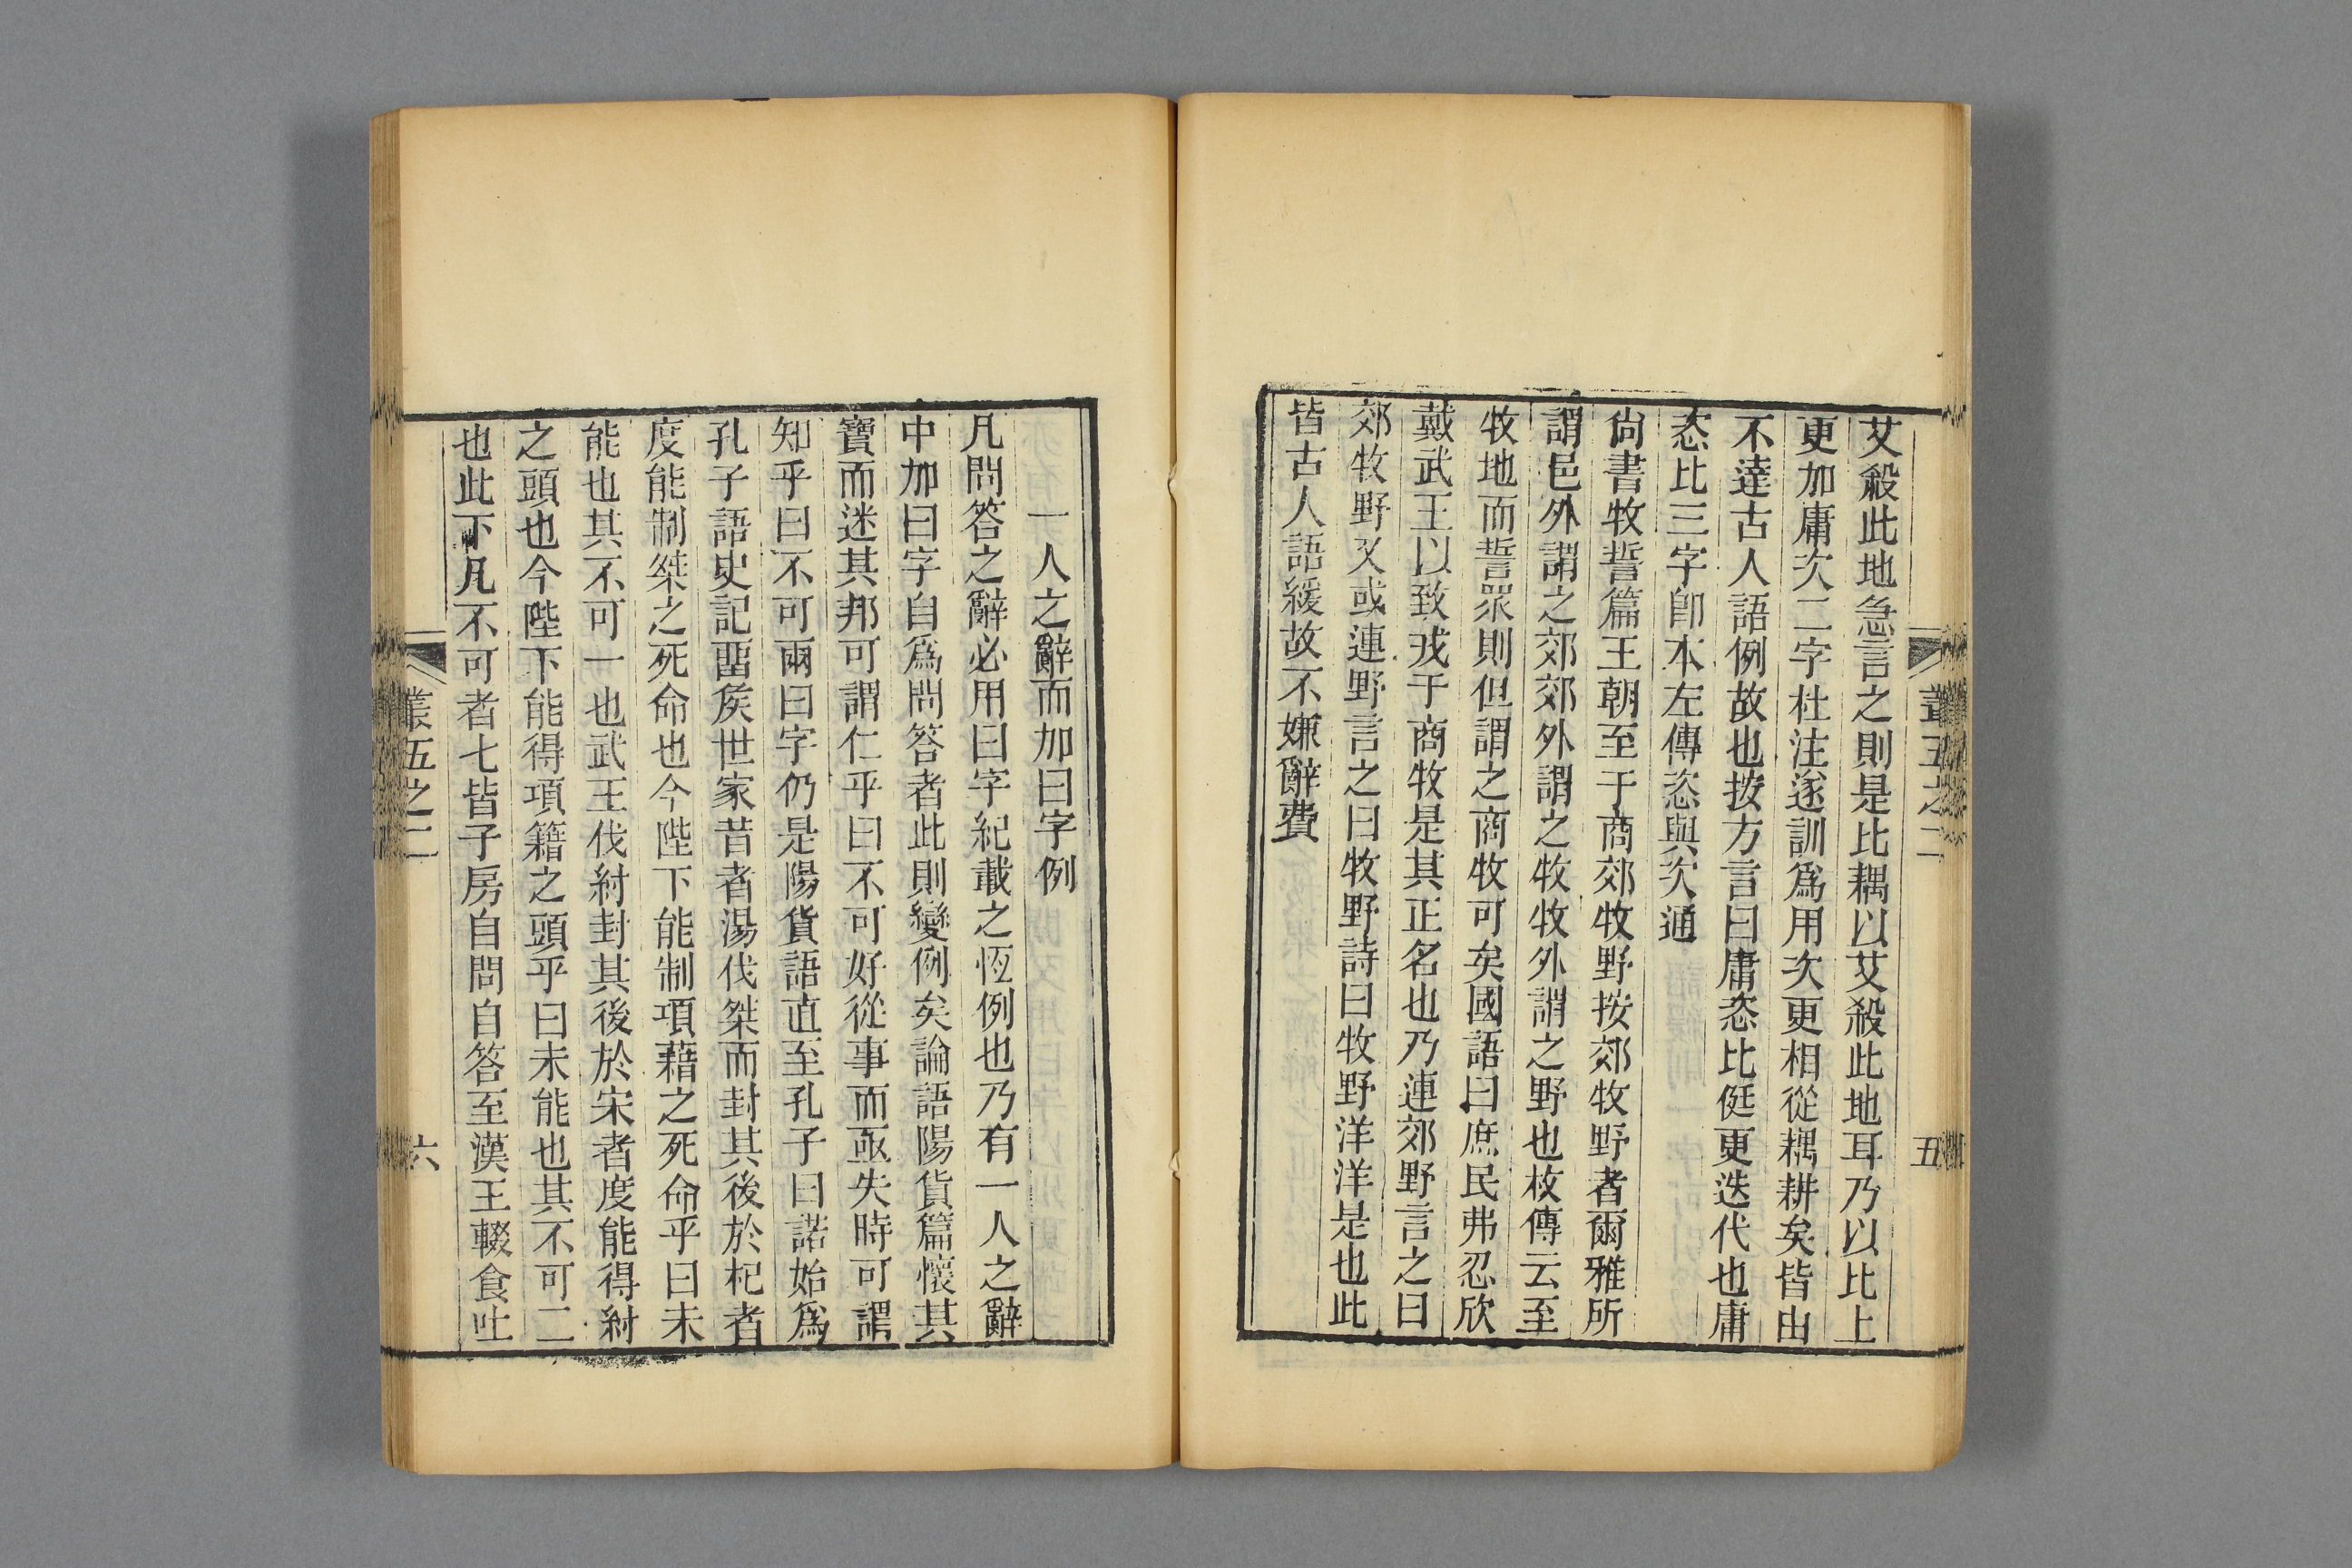 艾殺此地急言之則是比耦以艾殺此地耳乃以比上
更加庸次二字杜注遂訓爲用次更相從耦耕矣皆由
不達古人語例故也按方言曰庸恣比侹更迭代也庸
恣比三字卽本左傳恣與次通
尙書牧誓篇王朝至于商郊牧野按郊牧野者爾雅所
謂邑外謂之郊郊外謂之牧牧外謂之野也枚傳云至
牧地而誓眾則但謂之商牧可矣國語曰庶民弗忍欣
戴武王以致戎于商牧是其正名也乃連郊野言之曰
郊牧野又或連野言之曰牧野詩曰牧野洋洋是也此
皆古人語緩故不嫌辭費
五
一人之辭而加曰字例
凡問答之辭必用曰字紀載之恆例也乃有一人之辭
中加曰字自爲問答者此則變例矣論語陽貨篇懷其
寶而迷其邦可謂仁乎曰不可好從事而亟失時可謂
知乎曰不可兩曰字仍是陽貨語直至孔子曰諾始爲
孔子語史記畱矦世家昔者湯伐桀而封其後於杞者
度能制桀之死命也今陛下能制項藉之死命乎曰未
能也其不可一也武王伐紂封其後於宋者度能得紂
之頭也今陛下能得項籍之頭乎曰未能也其不可二
也此下凡不可者七皆子房自問自答至漢王輟食吐
叢五之二
六